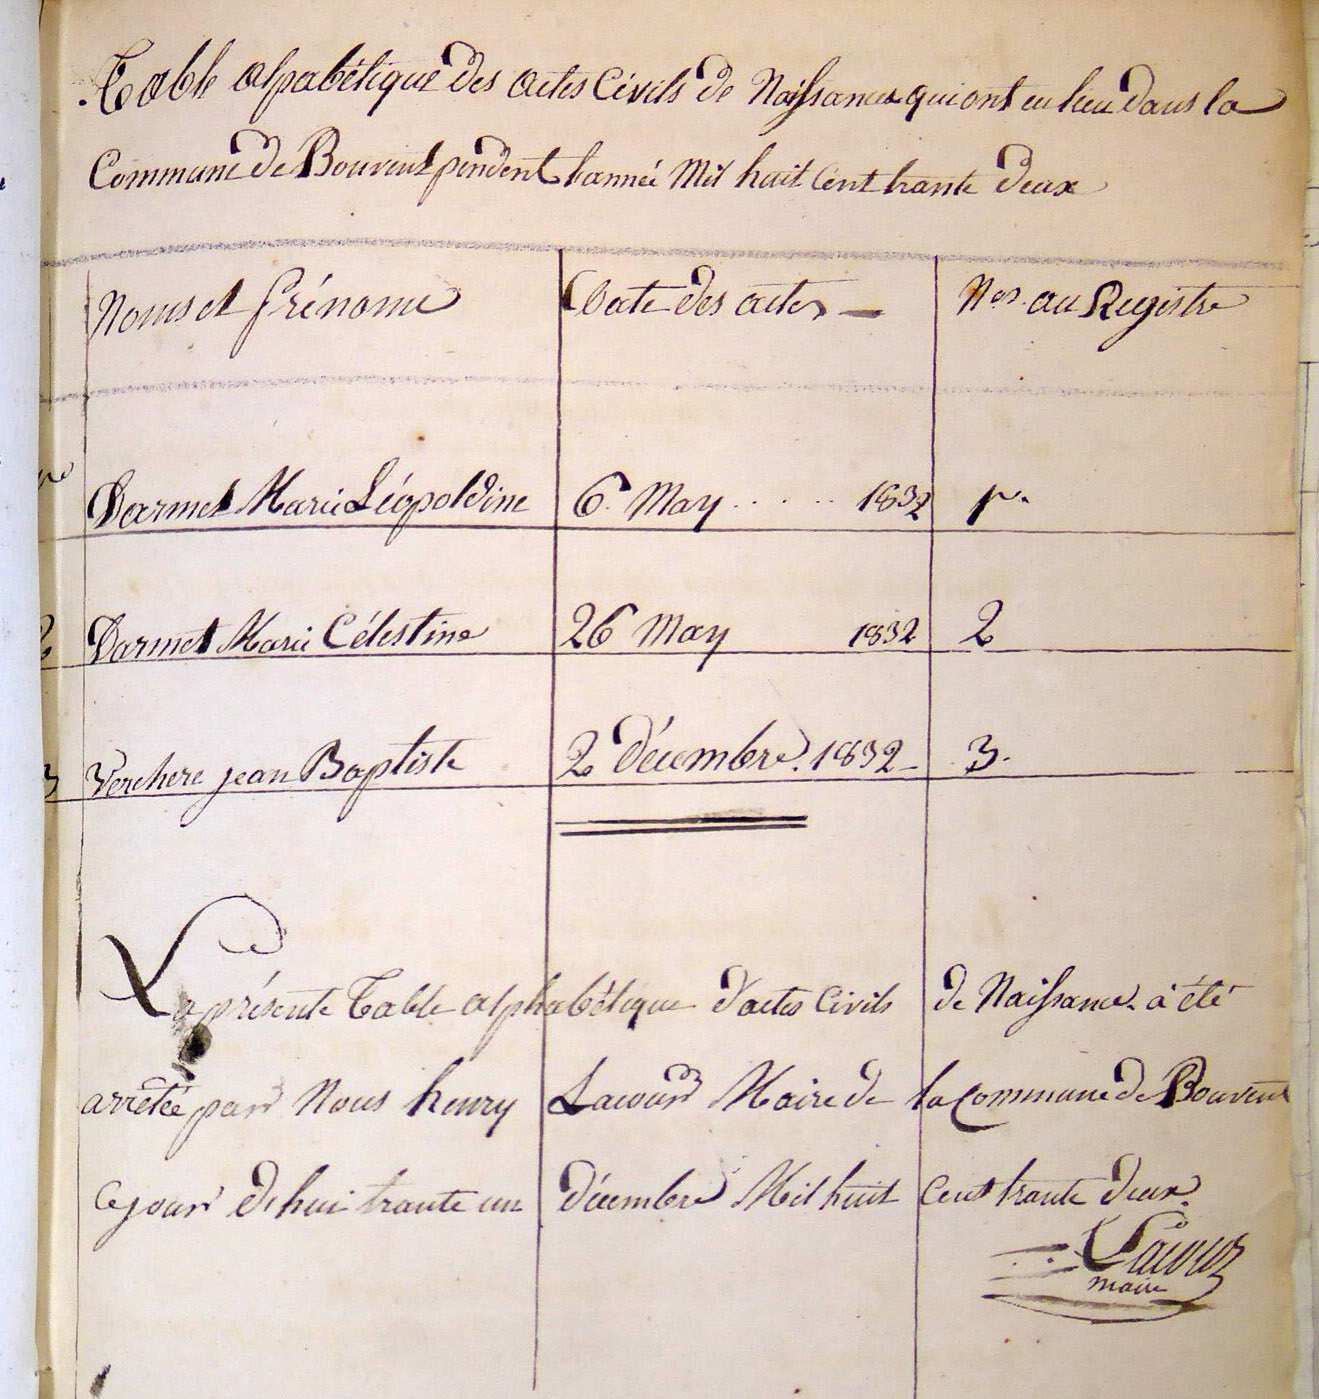 Table alpabétique des actes Civils de Naissances qui ont eu lieu dans la
Commune de Bouvent pendent l'année Mil huit Cent trante deux
Noms et Prénoms Date des actes Nos. au Registre
Darmet Marie Léopoldine 6. May ..... 1832 1er.
2 Darmet Marie Célestine 26 May 1832 2
3 Verchere jean Baptiste 2 décembre. 1832 3.
La présente Table alphabétique d'actes Civils de Naissance à été
arrêtée par Nous henry Lacour Maire de la Commune de Bouvent
Ce jour d'hui trante un décembre Mil huit Cent trante deux.
Lacour
maire